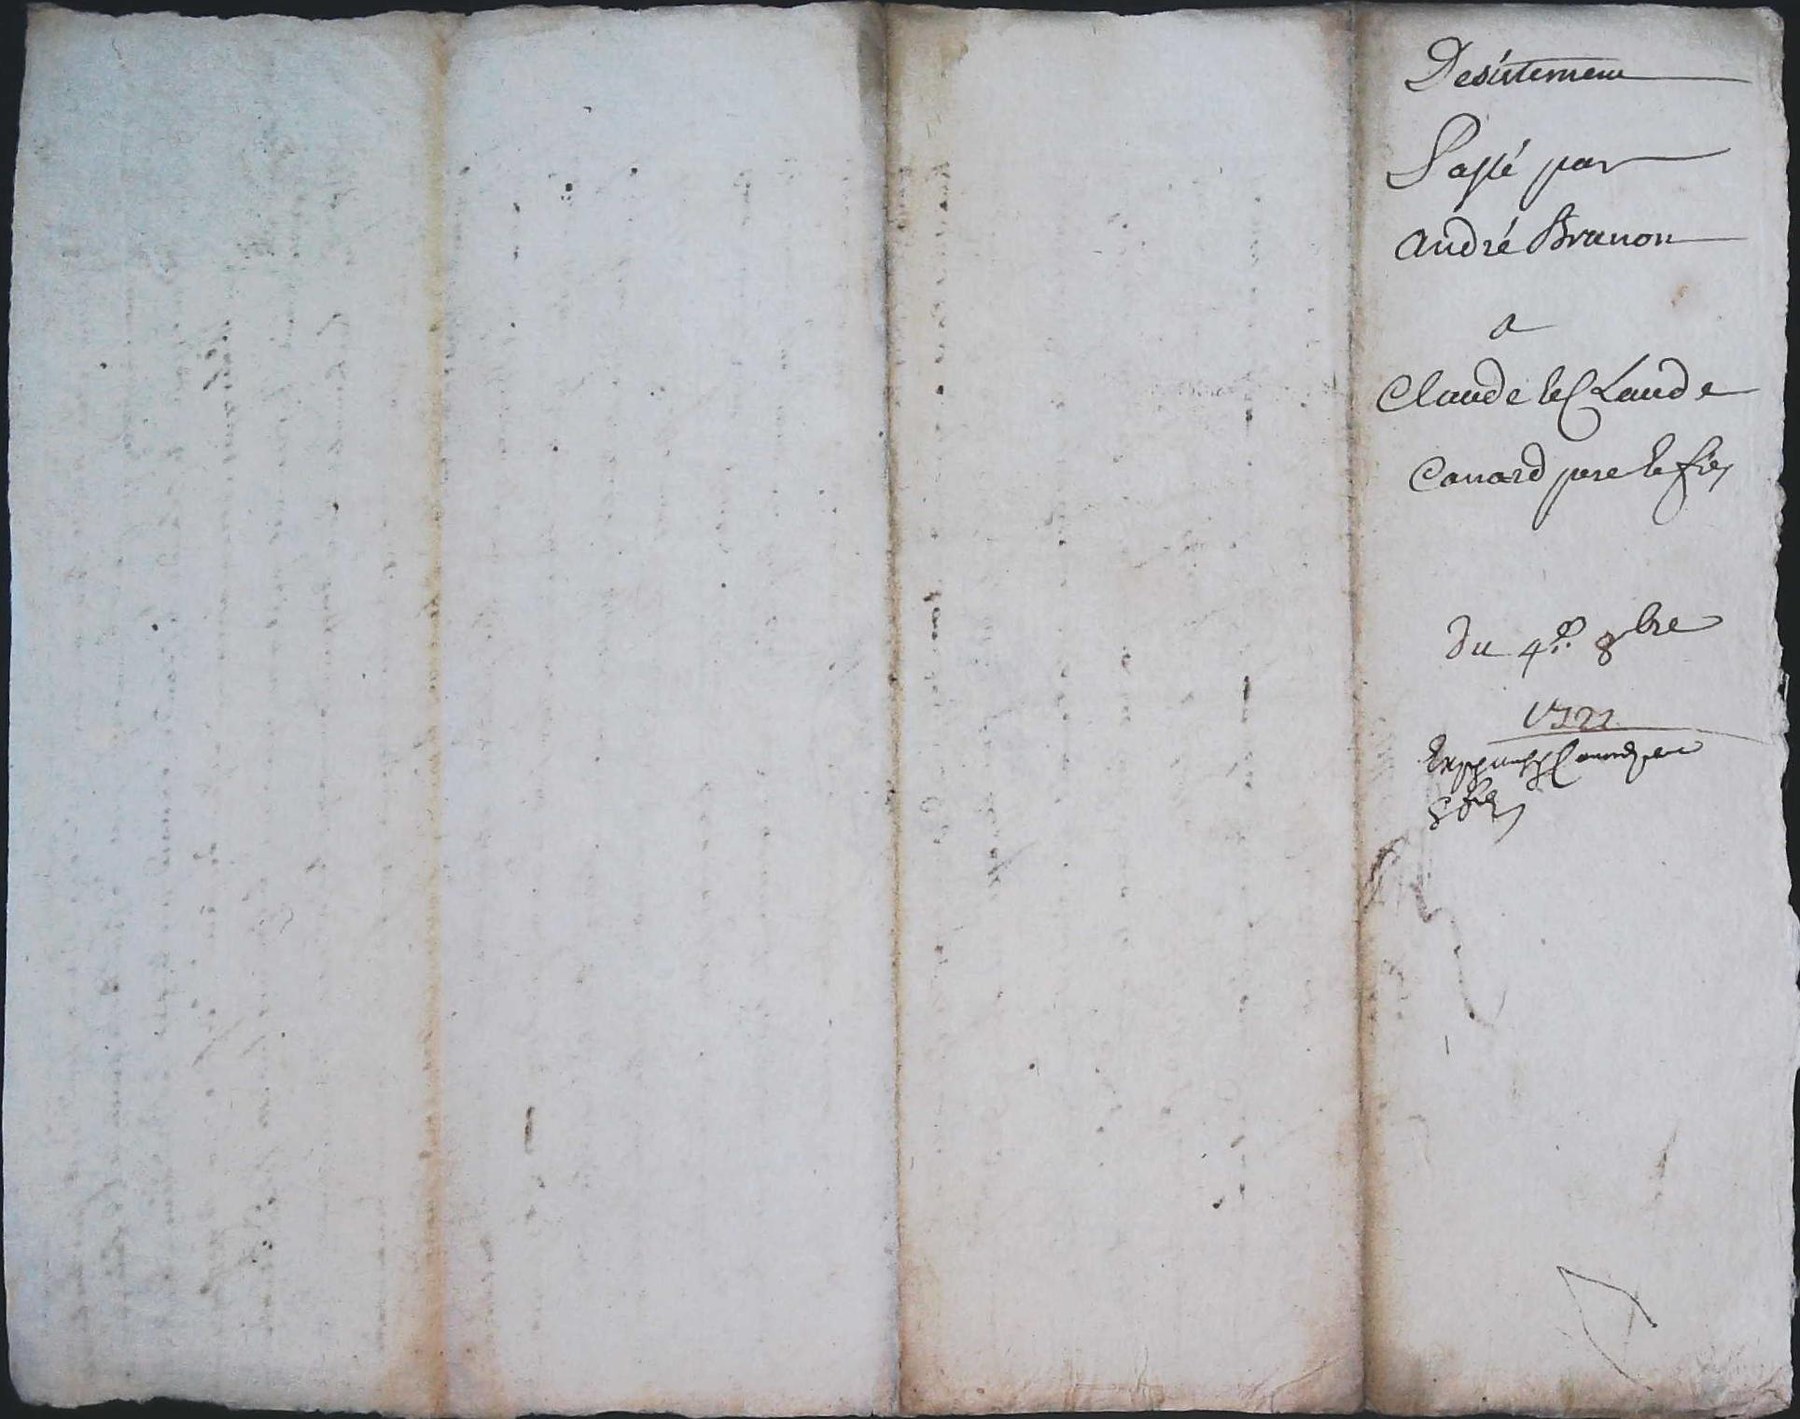 Desistement
Passé par
André Brunon
a
Claude et Claude
Canard pere et fis
du 4e 8bre
1722
Canard pere
& fis